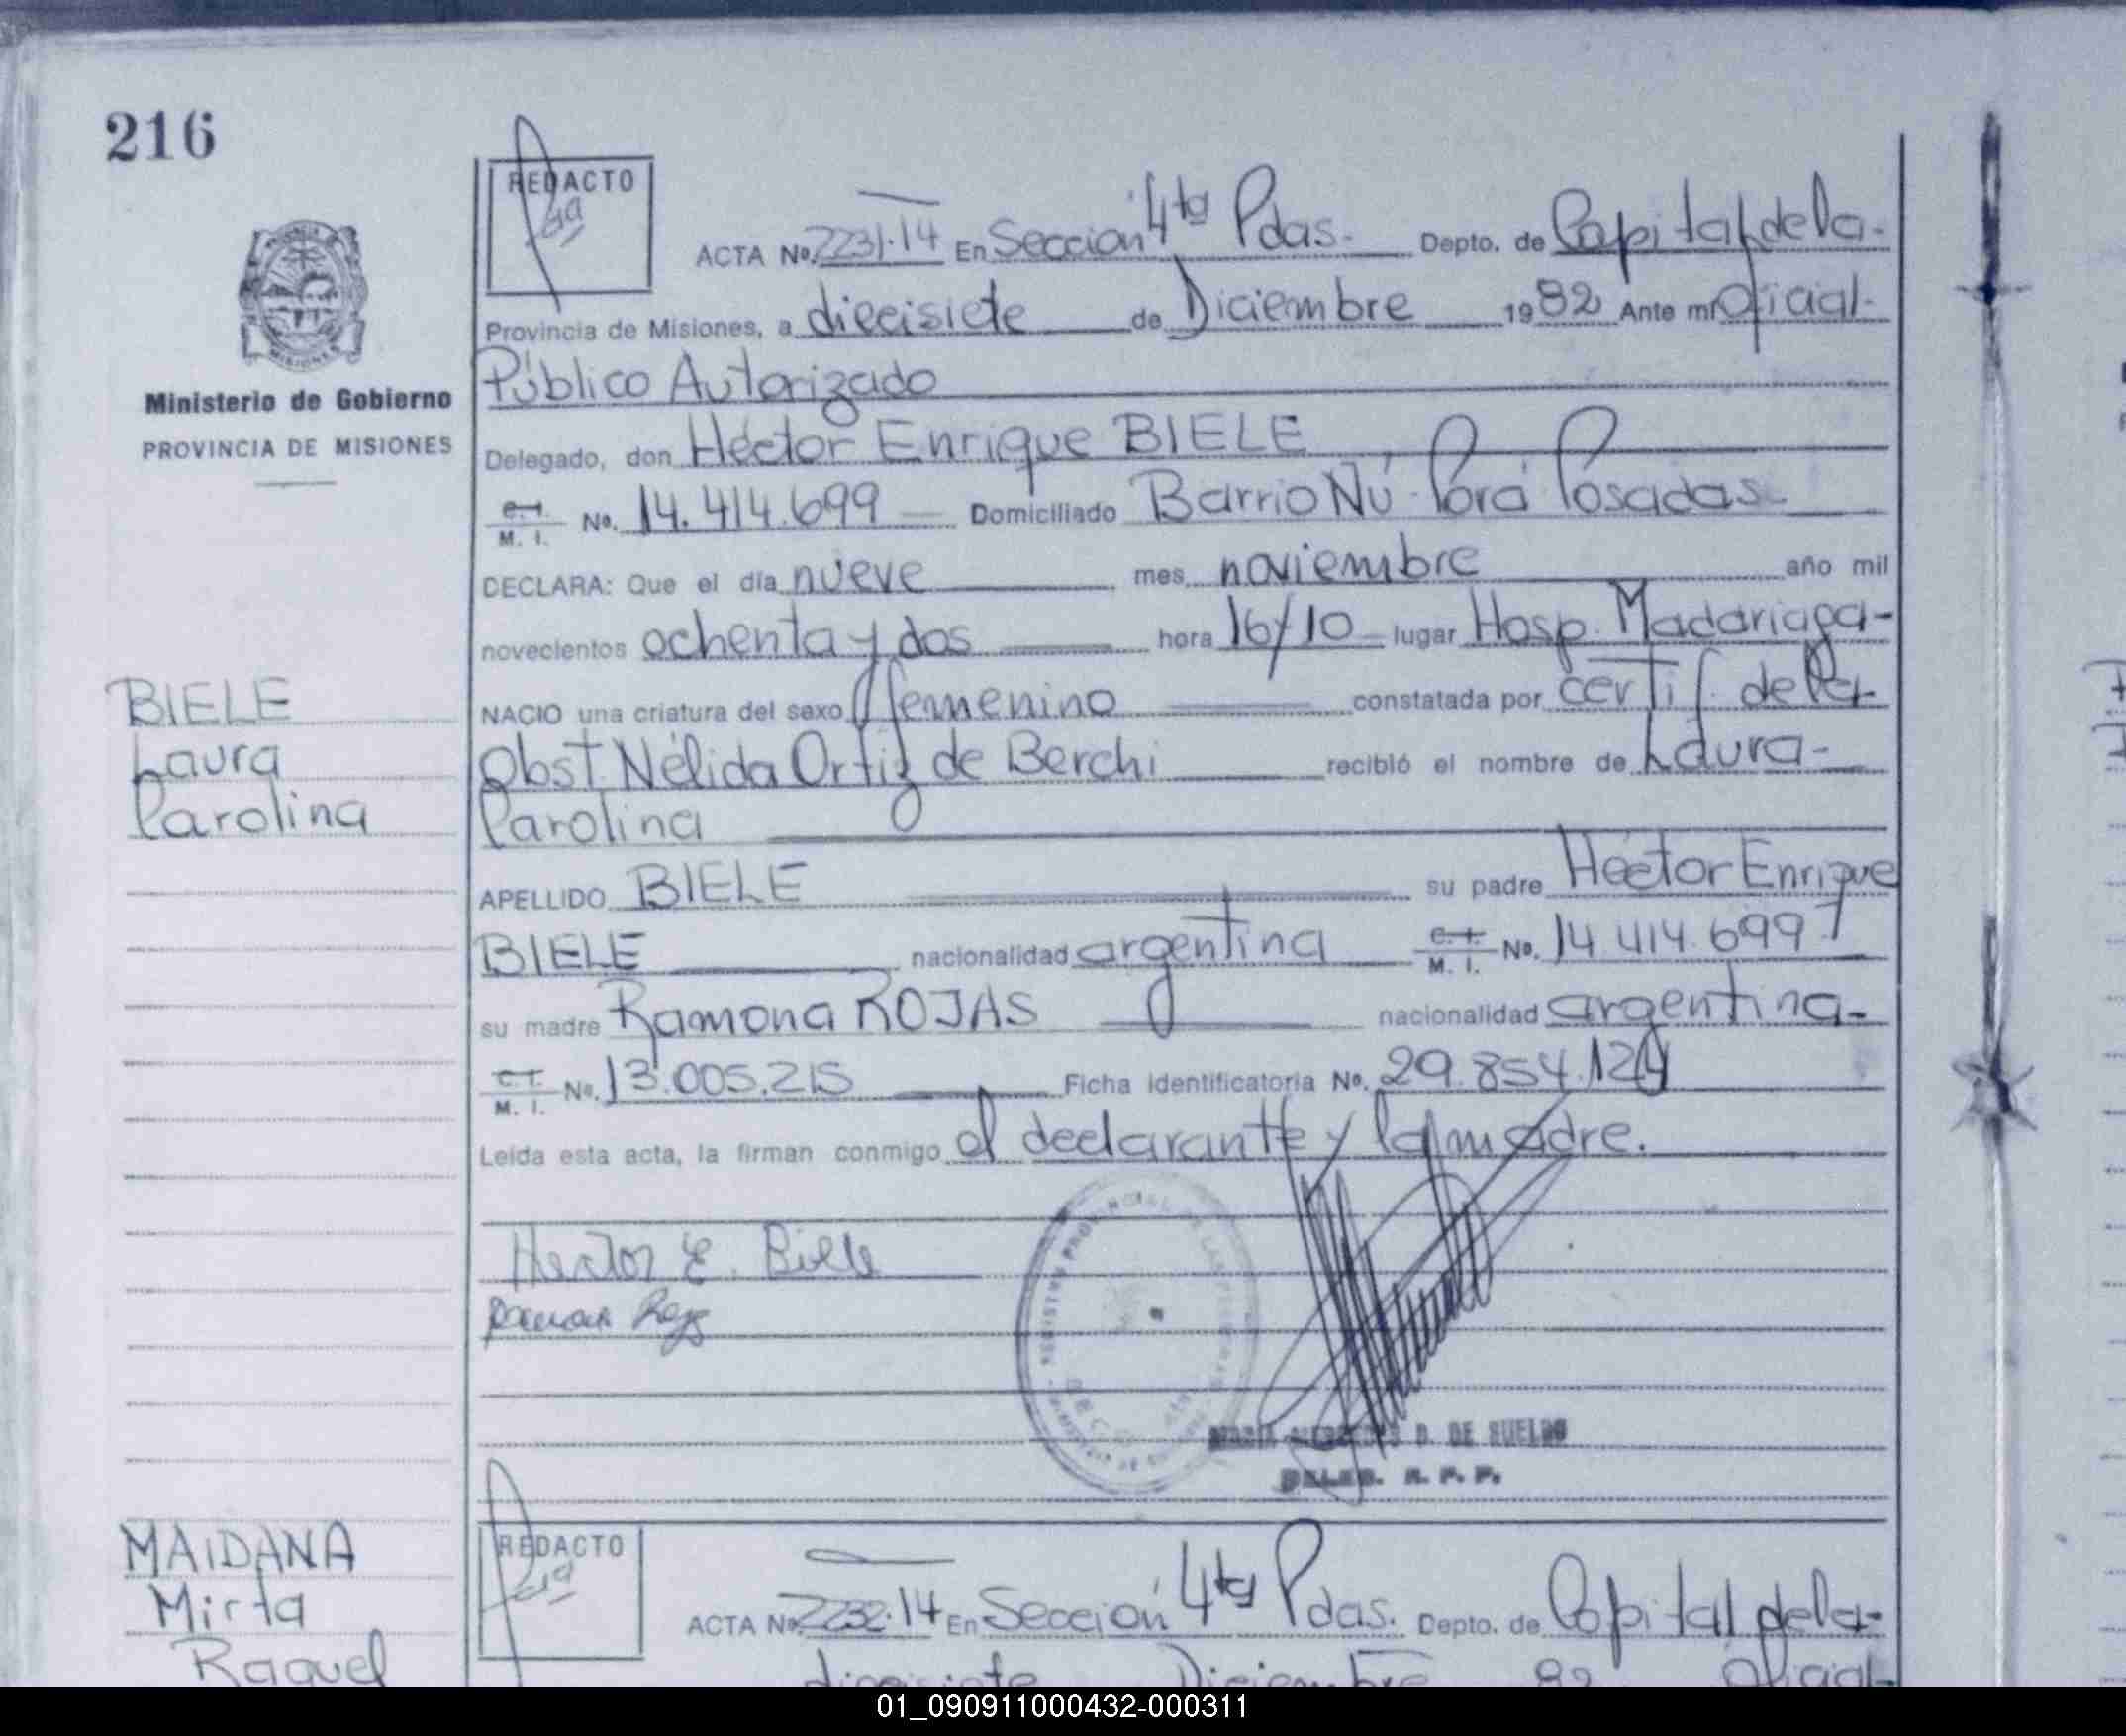 216
REDACTO
ACTA Nº. 2231.14 En Sección 4ta Pdas. Depto. de Capital de la-
Provincia de Misiones, a diecisiete de Diciembre 1982 Ante mi Oficial-
Público Autorizado
Ministerio de Gobierno
PROVINCIA DE MISIONES
Delegado, don Héctor Enrique BIELE
C. I. M. I. Nº. 14.414.699 Domiciliado Barrio Ñú Porá Posadas
DECLARA: Que el día nueve mes noviembre año mil
novecientos ochenta y dos hora 16/10 lugar Hosp. Madariaga-
BIELE
Laura
Carolina
NACIO una criatura del sexo femenino constatada por certif. de la
Obst. Nélida Ortiz de Berchi recibió el nombre de Laura-
Carolina
APELLIDO BIELE su padre Héctor Enrique
BIELE nacionalidad argentina C. I. M. I. Nº. 14.414.699
su madre Ramona ROJAS nacionalidad argentina-
C. I. M. I. Nº. 13.005.215 Ficha identificatoria Nº. 29.854.124
Leída esta acta, la firman conmigo el declarante y la madre.
Hector E. Biele
D. DE SUELDO
DELEG. R. P. P.
MAIDANA
Mirta
Raquel
REDACTO
ACTA Nº. 2232.14 En Sección 4ta Pdas. Depto. de Capital de la-
diecisiete Diciembre 82 Oficial-
01_090911000432-000311